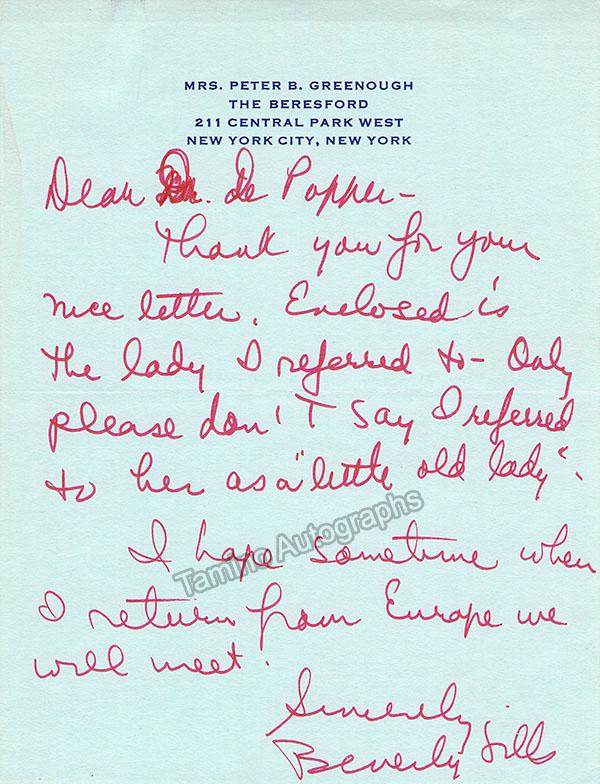 MRS. PETER B. GREENOUGH
THE BERESFORD
211 CENTRAL PARK WEST
NEW YORK CITY, NEW YORK
Dear Dr. de Popper -
Thank you for your
nice letter. Enclosed is
the lady I referred to - Only
please don't say I referred
to her as a "little old lady".
I hope sometime when
I return from Europe we
will meet.
Sincerely
Beverly Sills
Tamino Autographs